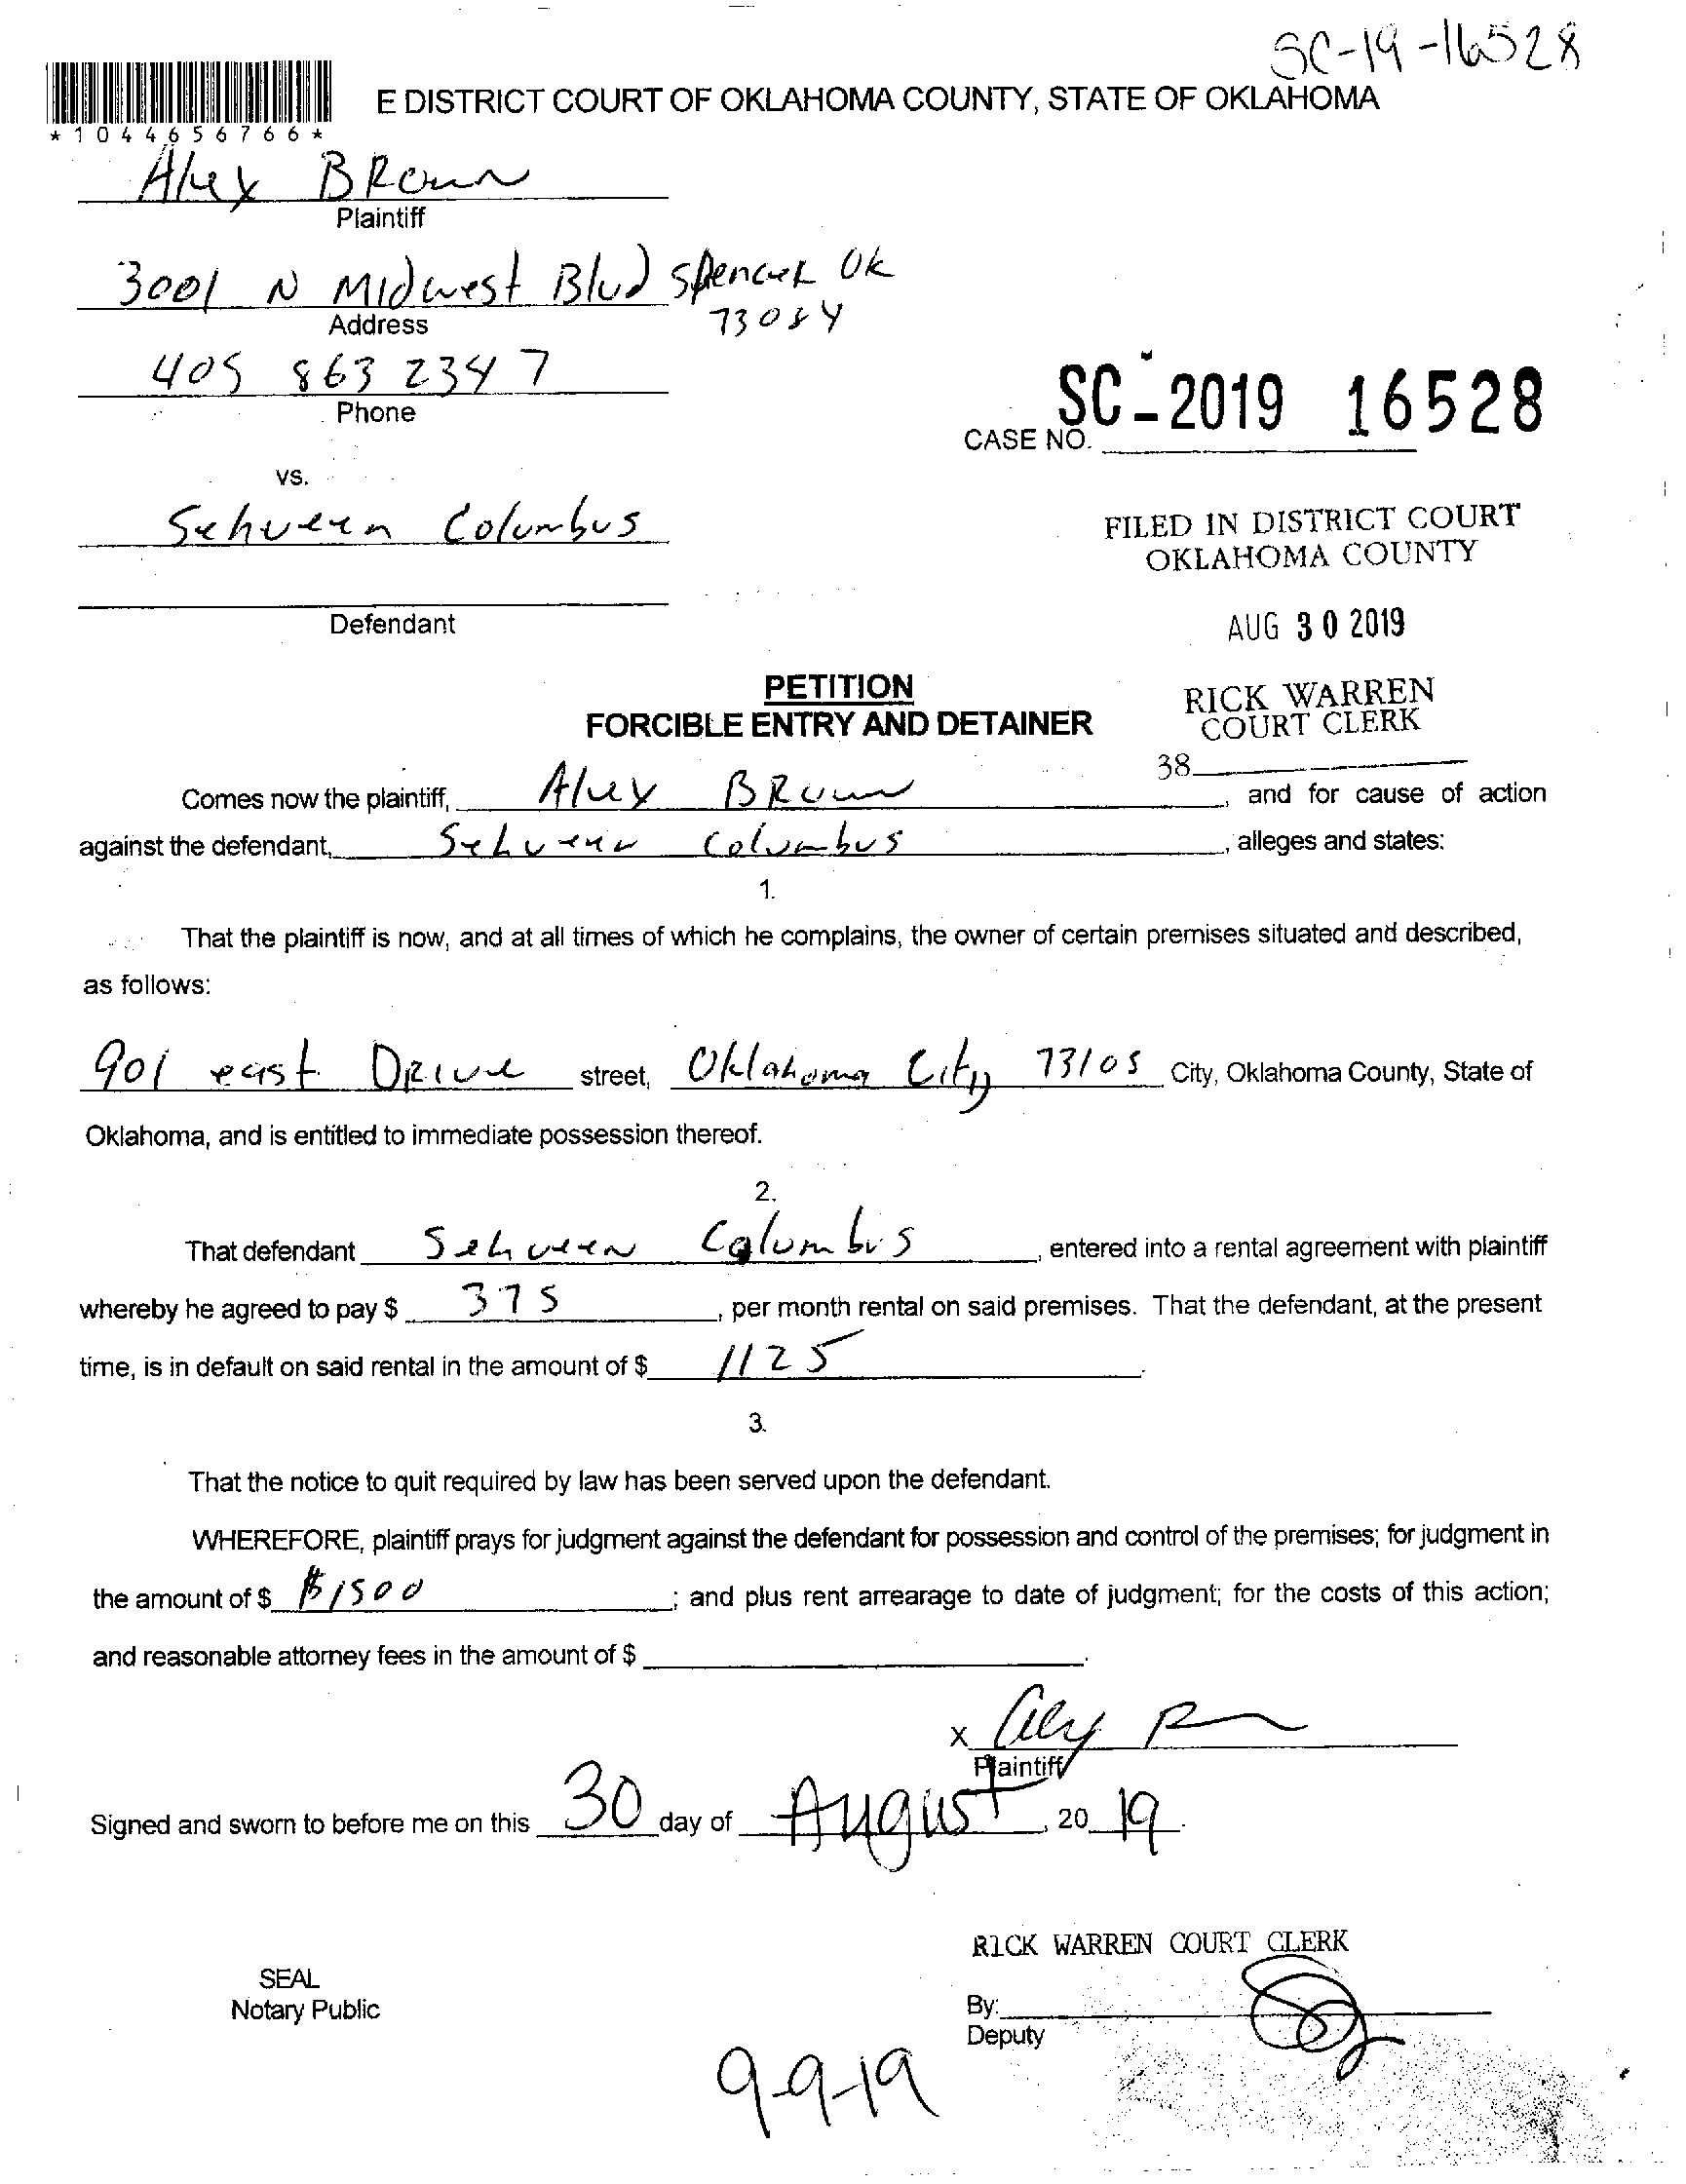 SC-19-16528
E DISTRICT COURT OF OKLAHOMA COUNTY, STATE OF OKLAHOMA
*1044656766*
Alex Brown
Plaintiff
3001 N Midwest Blvd Spencer Ok
73084
Address
405 863 2347
Phone
SC-2019 16528
CASE NO.
vs.
Sehveen Columbus
FILED IN DISTRICT COURT
OKLAHOMA COUNTY
Defendant
AUG 30 2019
PETITION
FORCIBLE ENTRY AND DETAINER
RICK WARREN
COURT CLERK
38
Comes now the plaintiff, Alex Brown, and for cause of action
against the defendant, Sehveen Columbus, alleges and states:
1.
That the plaintiff is now, and at all times of which he complains, the owner of certain premises situated and described,
as follows:
901 east Drive street, Oklahoma City, 73105 City, Oklahoma County, State of
Oklahoma, and is entitled to immediate possession thereof.
2.
That defendant Sehveen Columbus, entered into a rental agreement with plaintiff
whereby he agreed to pay $ 375, per month rental on said premises. That the defendant, at the present
time, is in default on said rental in the amount of $ 1125.
3.
That the notice to quit required by law has been served upon the defendant.
WHEREFORE, plaintiff prays for judgment against the defendant for possession and control of the premises; for judgment in
the amount of $ $1500; and plus rent arrearage to date of judgment; for the costs of this action;
and reasonable attorney fees in the amount of $.
x
Plaintiff
Signed and sworn to before me on this 30 day of August, 20 19.
RICK WARREN COURT CLERK
SEAL
Notary Public
By:
Deputy
9-9-19